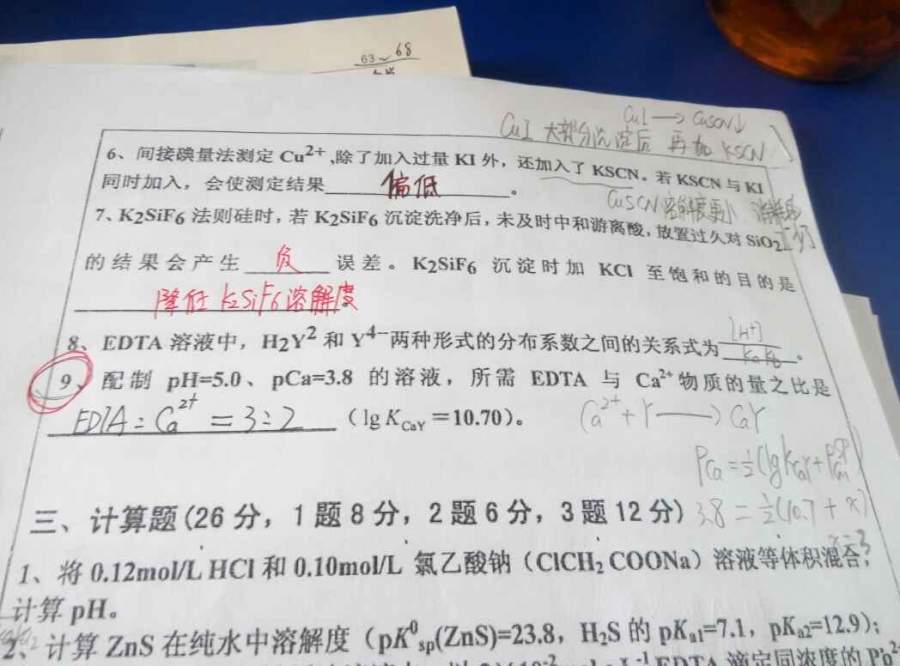 63~68
CuI → CuSCN↓
CuI 大部分沉淀后 再加 KSCN
6、间接碘量法测定 Cu²⁺,除了加入过量 KI 外，还加入了 KSCN。若 KSCN 与 KI
同时加入，会使测定结果 偏低 。
CuSCN 溶解度更小
7、K2SiF6 法则硅时，若 K2SiF6 沉淀洗净后，未及时中和游离酸，放置过久对 SiO2
的结果会产生 负 误差。K2SiF6 沉淀时加 KCl 至饱和的目的是
降低 K2SiF6 溶解度
8、EDTA 溶液中，H2Y² 和 Y⁴⁻两种形式的分布系数之间的关系式为 [H+] 。
9、配制 pH=5.0、pCa=3.8 的溶液，所需 EDTA 与 Ca²⁺物质的量之比是
EDTA : Ca²⁺ = 3:2 （lg K CaY =10.70）。 Ca²⁺+Y → CaY
PCa = ½(lgKCaY + PCa
三、计算题(26 分，1 题 8 分，2 题 6 分，3 题 12 分) 3.8 = ½(10.7 + x)
x=3
1、将 0.12mol/L HCl 和 0.10mol/L 氯乙酸钠（ClCH2 COONa）溶液等体积混合，
计算 pH。
2、计算 ZnS 在纯水中溶解度（pK⁰sp(ZnS)=23.8，H2S 的 pKa1=7.1，pKa2=12.9)；
EDTA 滴定同浓度的 Pb²⁺